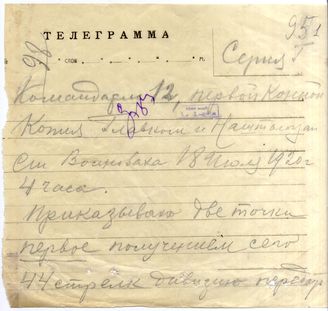 951
ТЕЛЕГРАММА
98
СЛОВ. ч. м.
Серия Г
Командарм 12, первой Конной
Копия Главком и Наштазап
Ст Волноваха 18 Июля 1920 г
4 часа.
Приказываю две точки
первое получением сего
44 стрелк дивизию передать